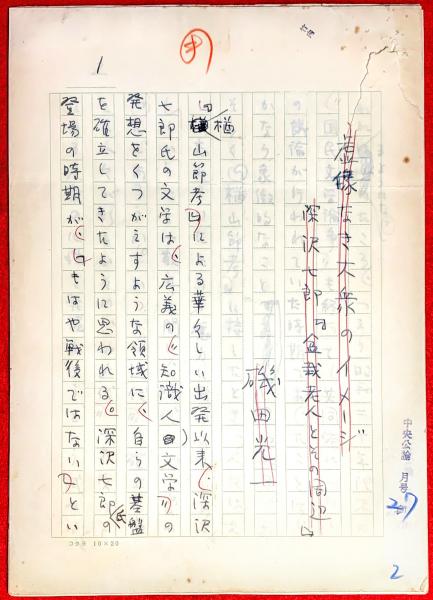 虚像なき大衆のイメージ
深沢七郎『盆栽老人とその周辺』
磯田光一
『楢山節考』による華々しい出発以来、深沢
七郎氏の文学は、広義の“知識人文学”の
発想をくつがえすような領域に、自らの基盤
を確立してきたように思われる。深沢七郎氏の
登場の時期が、“もはや戦後ではない”とい
1
中央公論 月号
27
2
コクヨ 10×20